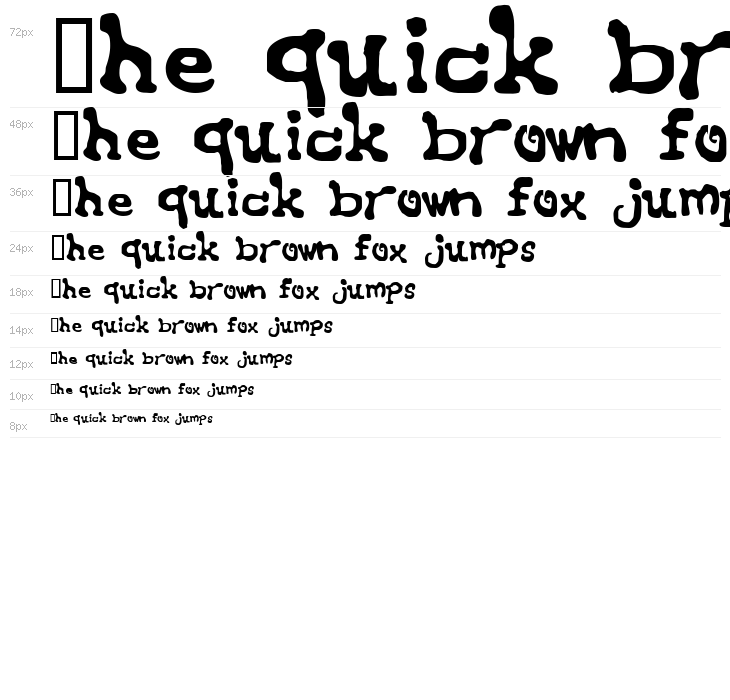 72px ▯he quick br
48px ▯he quick brown fo
36px ▯he quick brown fox jump
24px ▯he quick brown fox jumps
18px ▯he quick brown fox jumps
14px ▯he quick brown fox jumps
12px ▯he quick brown fox jumps
10px ▯he quick brown fox jumps
8px ▯he quick brown fox jumps